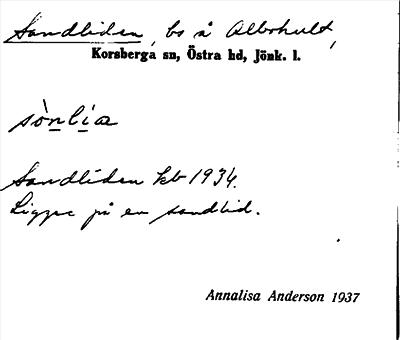 Sandliden, bs å Alboshult,
Korsberga sn, Östra hd, Jönk. l.
sònlia
Sandliden kb 1934.
Ligger på en sandlid.
Annalisa Anderson 1937